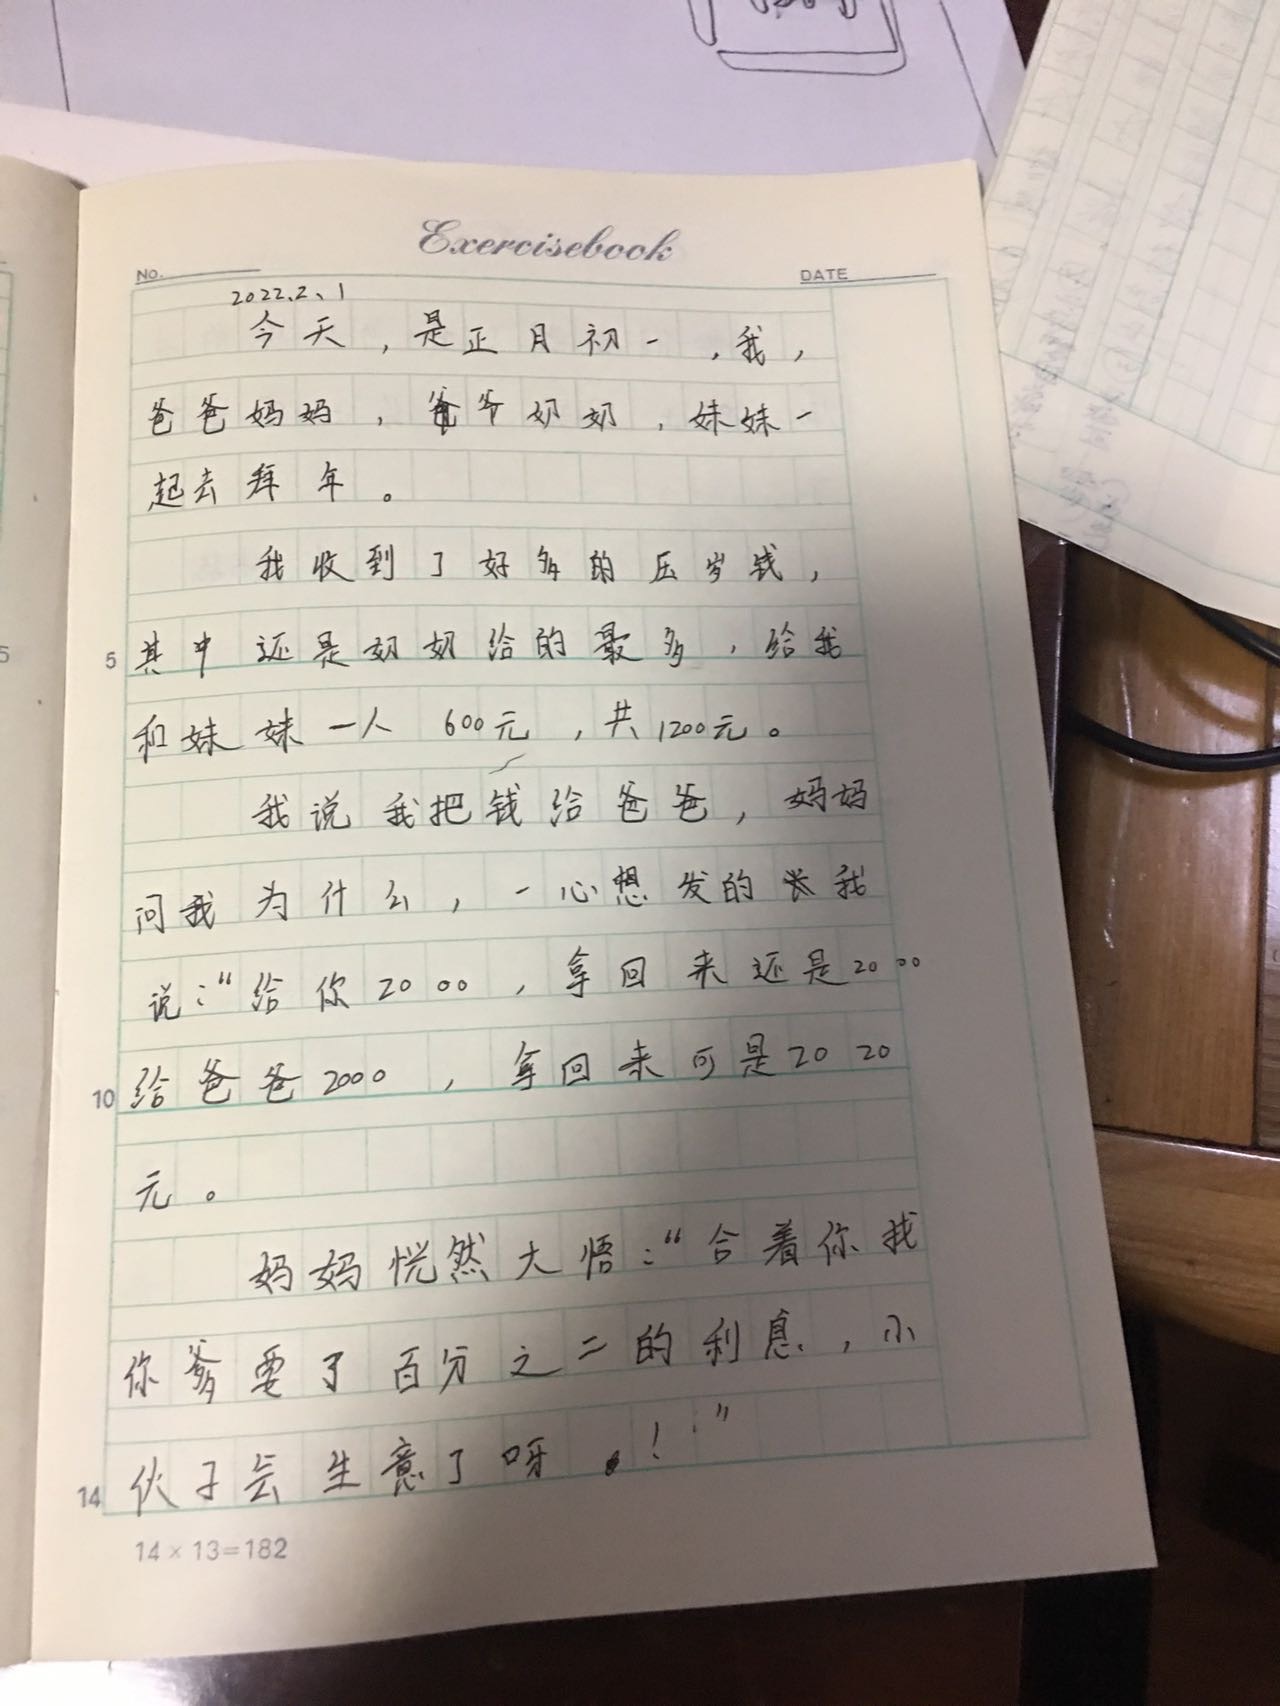 Exercisebook
NO.
DATE
2022.2、1
今天,是正月初一,我,
爸爸妈妈,爷爷奶奶,妹妹一
起去拜年。
我收到了好多的压岁钱,
5 其中还是奶奶给的最多,给我
和妹妹一人600元,共1200元。
我说我把钱给爸爸,妈妈
问我为什么,一心想发的我
说:“给你2000,拿回来还是2000
10 给爸爸2000,拿回来可是2020
元。
妈妈恍然大悟:“合着你找
你爹要了百分之二的利息,小
14 伙子会生意了呀!”
14×13=182
5